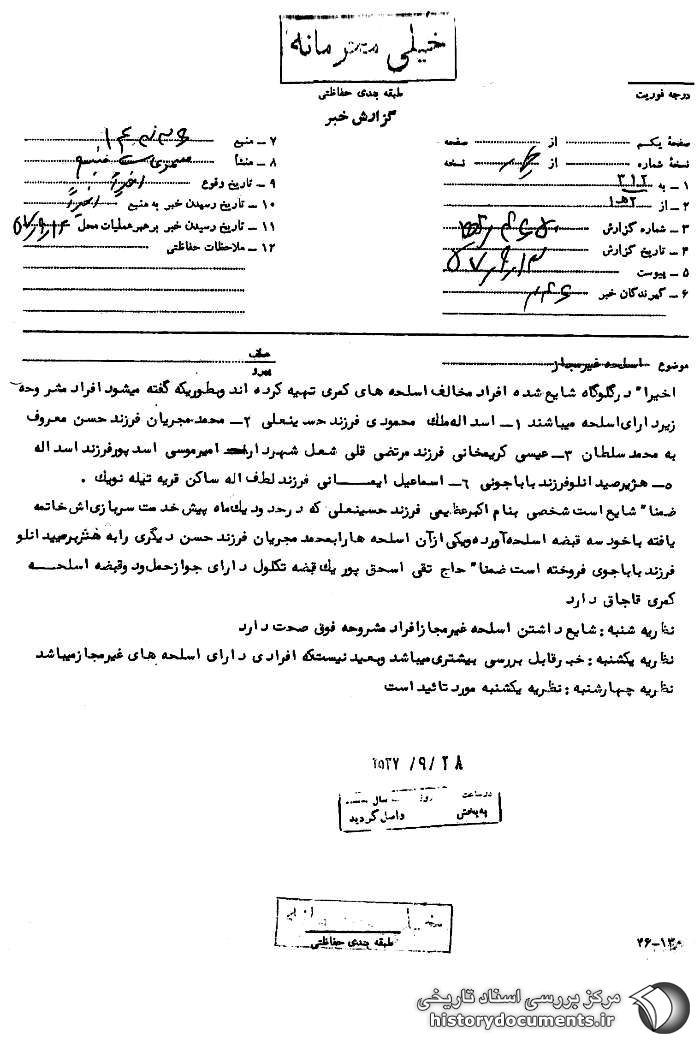 خیلی محرمانه
طبقه بندی حفاظتی
درجه فوریت
گزارش خبر
صفحهٔ یکم از صفحه
نسخهٔ شماره از نسخه
۱ ـ به ۳۱۲
۲ ـ از ۲ﻫ۱
۳ ـ شماره گزارش
۴ ـ تاریخ گزارش
۵ ـ پیوست
۶ ـ گیرندگان خبر
۷ ـ منبع
۸ ـ منشأ
۹ ـ تاریخ وقوع اخیراً
۱۰ ـ تاریخ رسیدن خبر به منبع اخیراً
۱۱ ـ تاریخ رسیدن خبر برهبر عملیات محل
۱۲ ـ ملاحظات حفاظتی
موضوع اسلحه غیرمجاز
عطف
پیرو
اخیرا" درگلوگاه شایع شده افراد مخالف اسلحه های کمری تهیه کرده اند وبطوریکه گفته میشود افراد مشروحه
زیر دارای اسلحه میباشند ۱ـ اسداله ملک محمودی فرزند حسینعلی ۲ـ محمد مجریان فرزند حسن معروف
به محمد سلطان ۳ـ عیسی کریمخانی فرزند مرتضی قلی شغل شهردار امیرموسی اسدپور فرزند اسداله
۵ـ هژبر صیدانلو فرزند باباجونی ۶ـ اسماعیل ایمانی فرزند لطف اله ساکن قریه تیله نویک .
ضمنا" شایع است شخصی بنام اکبر عظیمی فرزند حسینعلی که در حدود یک ماه پیش خدمت سربازی اش خاتمه
یافته باخود سه قبضه اسلحه آورده ویکی از آن اسلحه ها را بمحمد مجریان فرزند حسن دیگری را به هژبر صیدانلو
فرزند باباجوی فروخته است ضمنا" حاج تقی اسحق پور یک قبضه تکلول دارای جواز حمل ودو قبضه اسلحه
کمری قاچاق دارد
نظریه شنبه : شایع داشتن اسلحه غیرمجاز افراد مشروحه فوق صحت دارد
نظریه یکشنبه : خبر قابل بررسی بیشتری میباشد وبعید نیست که افرادی دارای اسلحه های غیرمجاز میباشد
نظریه چهارشنبه : نظریه یکشنبه مورد تائید است
۲۸ /۹/ ۲۵۳۷
در ساعت روز سال
به بخش واصل گردید
طبقه بندی حفاظتی
مرکز بررسی اسناد تاریخی
historydocuments.ir